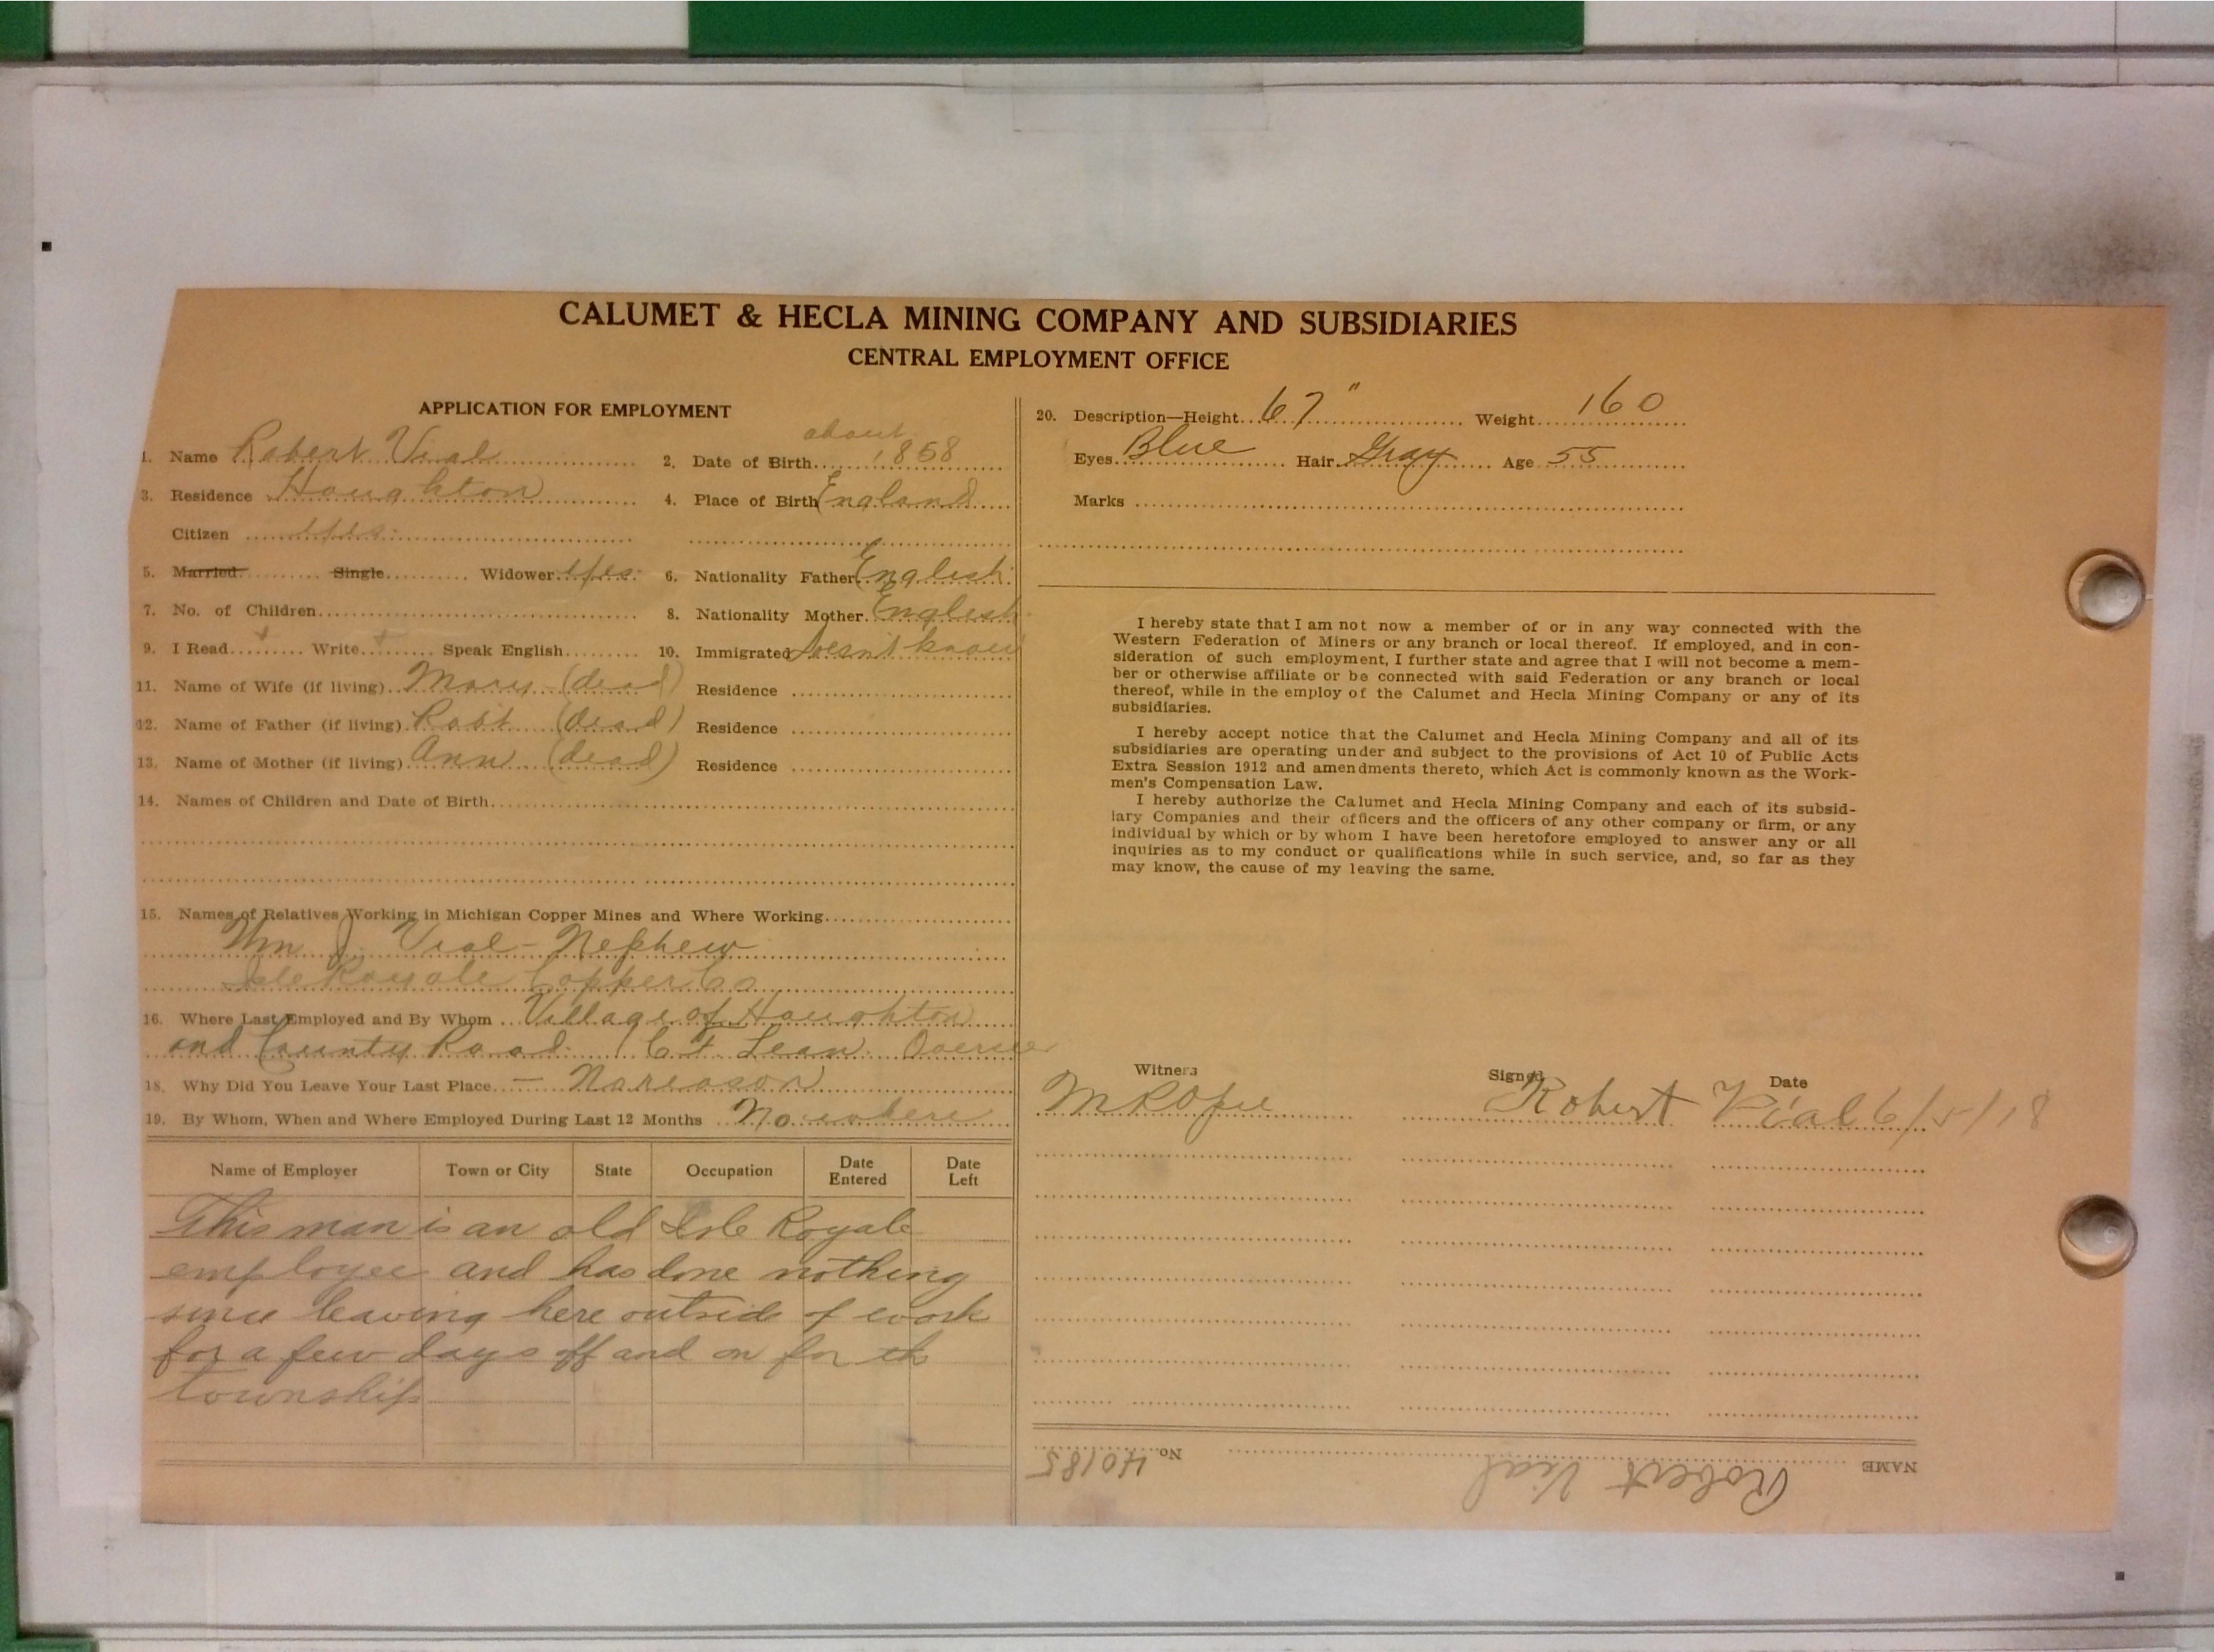 CALUMET & HECLA MINING COMPANY AND SUBSIDIARIES
CENTRAL EMPLOYMENT OFFICE
APPLICATION FOR EMPLOYMENT
1. Name Robert Vial 2. Date of Birth about 1858
3. Residence Houghton 4. Place of Birth England
Citizen yes
5. Married Single Widower yes 6. Nationality Father English
7. No. of Children 8. Nationality Mother English
9. I Read + Write + Speak English 10. Immigrated Doesn't know
11. Name of Wife (if living) Mary (dead) Residence
12. Name of Father (if living) Robt (dead) Residence
13. Name of Mother (if living) Ann (dead) Residence
14. Names of Children and Date of Birth
15. Names of Relatives Working in Michigan Copper Mines and Where Working
Wm J. Vial - Nephew
Isle Royale Copper Co
16. Where Last Employed and By Whom Village of Houghton
and County Road
18. Why Did You Leave Your Last Place - No reason
19. By Whom, When and Where Employed During Last 12 Months No where
Name of Employer Town or City State Occupation Date Entered Date Left
This man is an old Isle Royale
employee and has done nothing
since leaving here outside of work
for a few days off and on for the
township
20. Description—Height 67" Weight 160
Eyes Blue Hair Gray Age 55
Marks
I hereby state that I am not now a member of or in any way connected with the
Western Federation of Miners or any branch or local thereof. If employed, and in con-
sideration of such employment, I further state and agree that I will not become a mem-
ber or otherwise affiliate or be connected with said Federation or any branch or local
thereof, while in the employ of the Calumet and Hecla Mining Company or any of its
subsidiaries.
I hereby accept notice that the Calumet and Hecla Mining Company and all of its
subsidiaries are operating under and subject to the provisions of Act 10 of Public Acts
Extra Session 1912 and amendments thereto, which Act is commonly known as the Work-
men's Compensation Law.
I hereby authorize the Calumet and Hecla Mining Company and each of its subsid-
iary Companies and their officers and the officers of any other company or firm, or any
individual by which or by whom I have been heretofore employed to answer any or all
inquiries as to my conduct or qualifications while in such service, and, so far as they
may know, the cause of my leaving the same.
Witness Signed Date
Robert Vial 6/5/18
NAME Robert Vial No. 40185